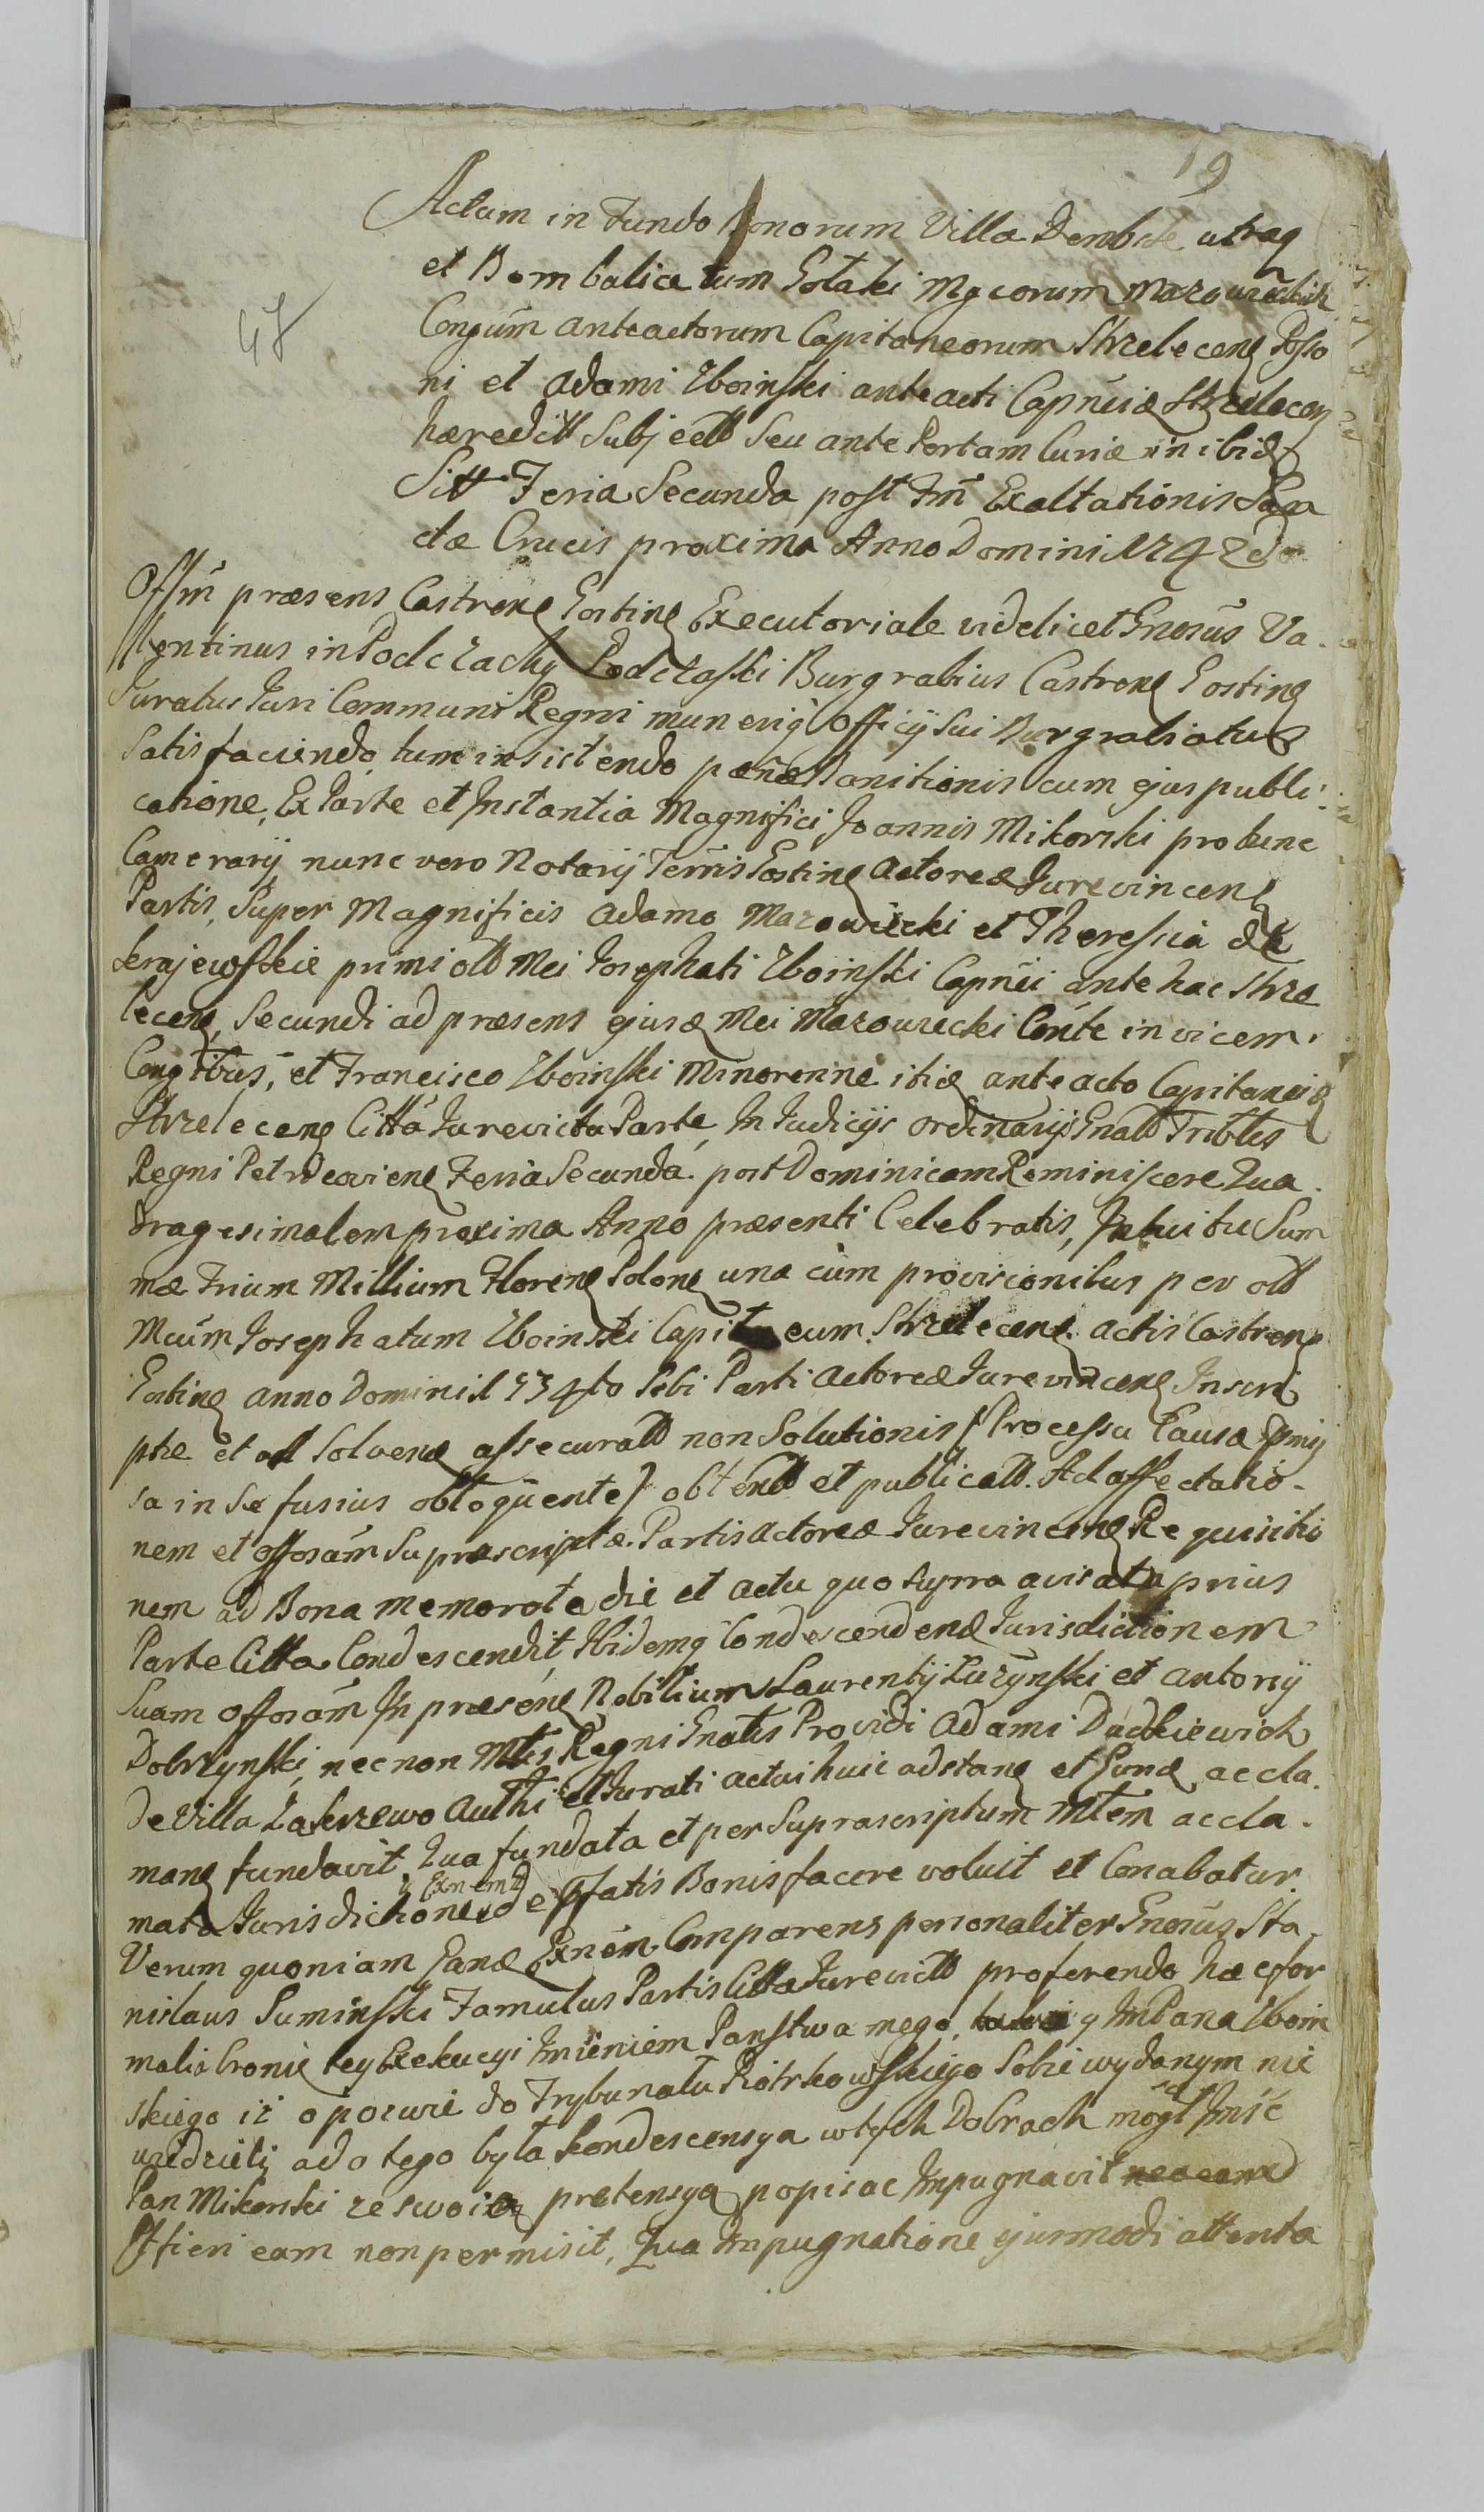 19
47
Actum in Fundo Bonorum Villa Dembsk utraq
et Bombalice tum Gołaki Mgcorum Mazowieckich
Congum anteactorum Capitaneorum Strzelecen Posso
ni et Adami Zboinski anteacti Capnei Strzelecen
hæreditt Subjectt Seu ante Portam Curiæ inibid
Sitt Feria Secunda post Ftm Exaltationis San
ctæ Crucis proxima Anno Domini 1742do
Offm præsens Castren Gostinen Executoriale videlicet Gnosus Va-
lentinus in Podczachy Podczaski Burgrabius Castren Gostinen
Juratus Juri Communi Regni munerisq Officij Sui Burgrabiatus
Satisfaciendo, tum insistendo pœnæ Banitionis cum ejus publi-
catione, Ex Parte et Instantia Magnifici Joannis Mikorski pro tunc
Camerarij nunc vero Notarij Terris Gostinen Actoreæ Jurevincen
Partis, Super Magnificis Adamo Mazowiecki et Theressia de
krajewskie primi olt Mci Josephati Zboinski Capnei antehac Strze
lecen, Secundi ad præsens ejusd Mci Mazowiecki Conte invicem
Congibus, et Francisco Zboinski Minorenne itid anteacto Capitaneid
Strzelecen Citta Jurevicta Parte, In Judicijs Ordinarijs Gnalt Tribtis
Regni Petricovien Feria Secunda post Dominicam Reminiscere Qua-
dragesimalem proxima Anno præsenti Celebratis, Intuitu Sum
mæ Trium Millium Floren Polon una cum provisionibus per olt
Mcum Josephatum Zboinski Capitaneum Strzelecen Actis Castren
Gostinen Anno Domini 1734to Sibi Parti Actoreæ Jurevincen Inscri
ptæ et ad Solvend assecuratt non Solutionis (Processu Causæ pmis
sa in Se fusius obloquente) obtentt et publicatt. Ad affectatio-
nem et Offosam Supræscriptæ Partis Actoreæ Jurevincen Requisitio
nem ad Bona memorata die et actu quo Supra avisata prius
Parte Citta Condescendit, Ibidemq Condescenden Jurisdictionem
Suam Offosam In præsen Nobilium Laurentij Luzynski et Antonij
Dobrzynski, necnon Mtis Regni Gnalis Providi Adami Dudkiewich
de Villa Zakrzewo Authi et Jurati Actui huic adstan et Eund accla-
man fundavit, Qua fundata et per Supræscriptum Mtem accla-
mata Jurisdictione, Exnem deffatis Bonis facere voluit et Conabatur.
Verum quoniam Eand Exnem Comparens personaliter Gnosus Sta-
nislaus Suminski Famulus Partis Citta Jurevictt proferendo hæc for
malia bronię tey Exekucyi Imieniem Panstwa mego, y ImPana Zboin
skiego iż o pozwie do Trybunału Piotrkowskiego Sobie wydanym nie
wiedzieli, a do tego była kondescensya w tych Dobrach mogł Jmść
Pan Mikorski ze swoią pretensyą popisac Impugnavit
fieri eam non permisit, Qua Impugnatione ejusmodi attenta